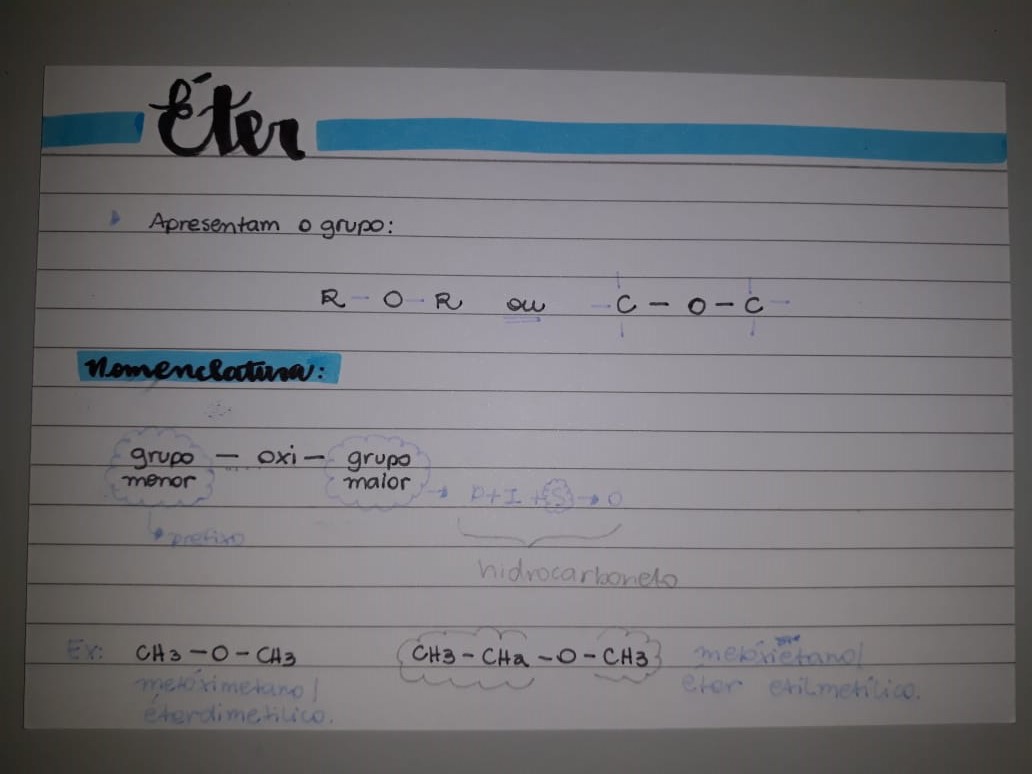 Éter
Apresentam o grupo:
R - O - R ou - C - O - C -
Nomenclatura:
grupo menor - oxi - grupo maior → P+I+S → O
prefixo
hidrocarboneto
Ex: CH3 - O - CH3
metóximetano/
éterdimetilico.
CH3 - CH2 - O - CH3
metóxietano/
eter etilmetílico.